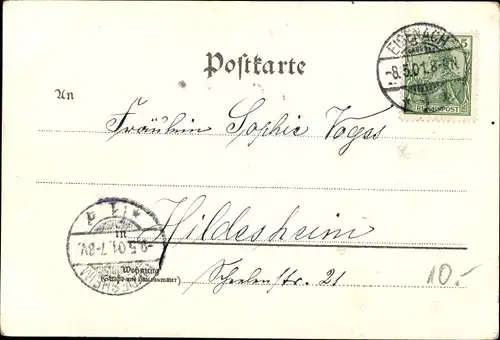 EISENACH
-8.5.01.8-9N.
5
REICHSPOST
Postkarte
An
Fräulein Sophie Voges
in Hildesheim
HILDESHEIM
9.5.01.7-8V.
Wohnung
(Straße und Hausnummer)
Scheelenstr. 21
10.-